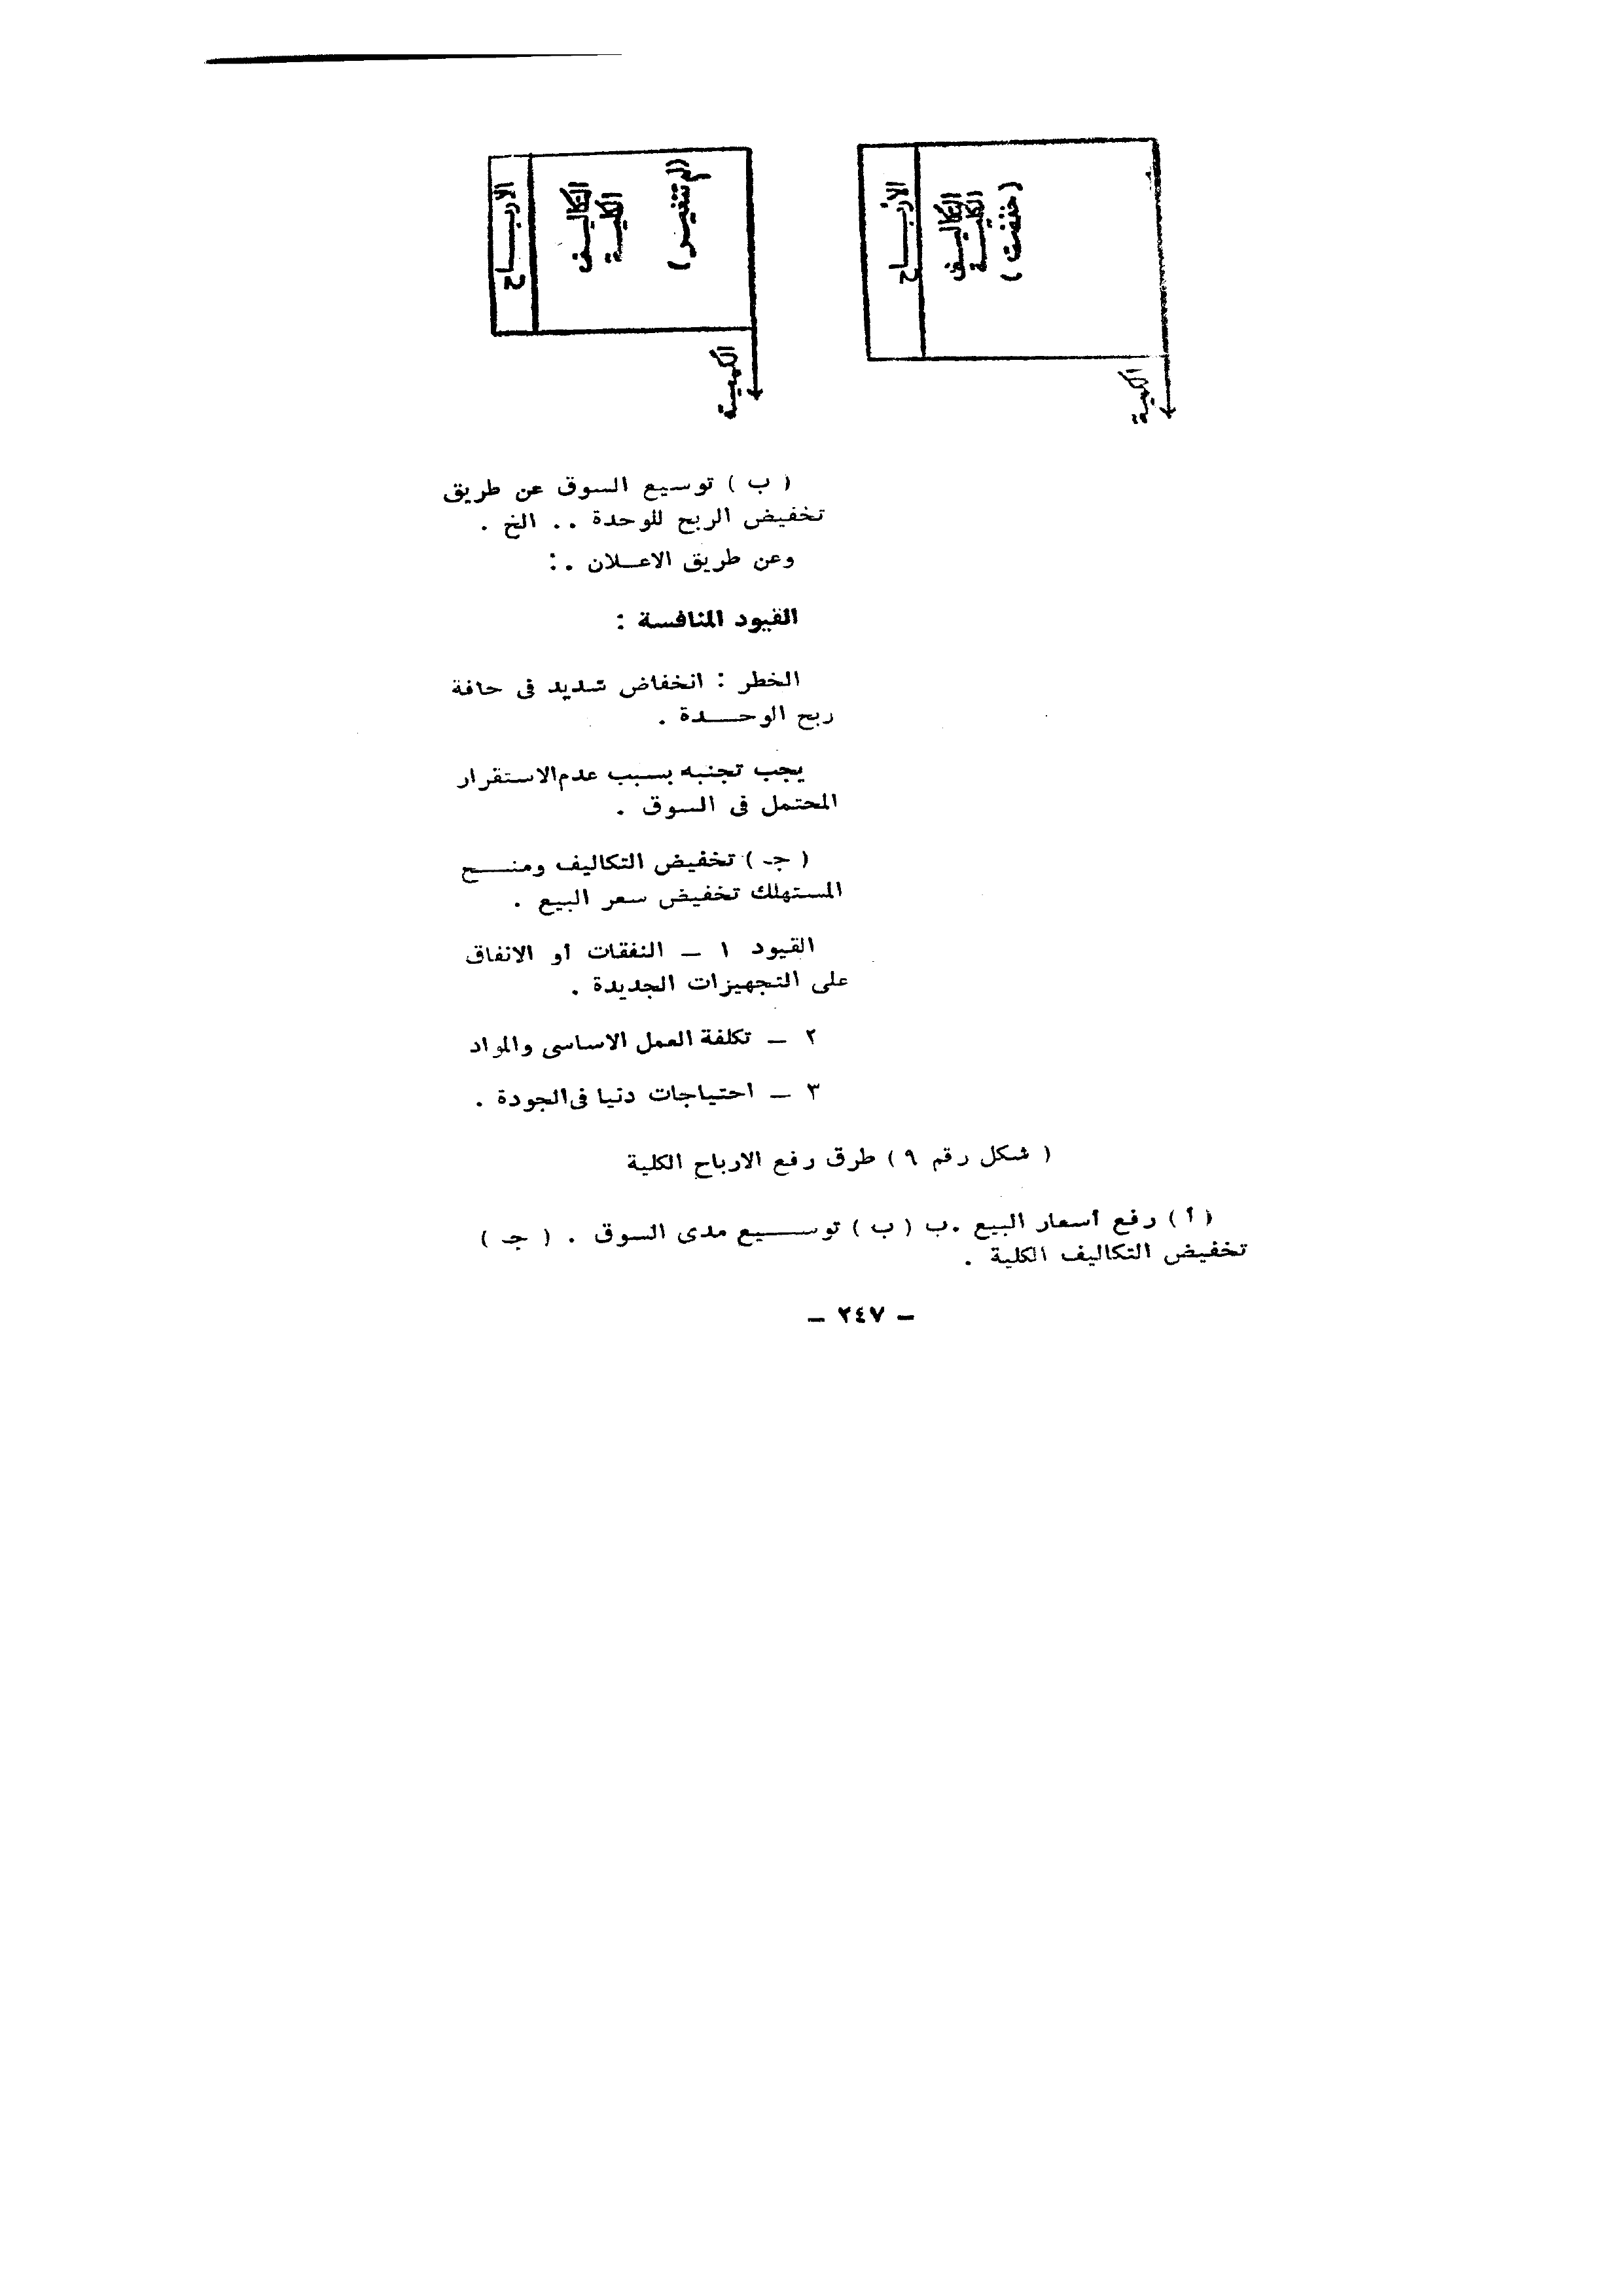 الأربـــاح
التكاليـف
الكليـة
(خفضت)
الكمية
الأربـــاح
التكاليـف
الكليـة
(لم تتغيـر)
الكمية
( ب ) توسيع السوق عن طريق
تخفيض الربح للوحدة .. الخ .
وعن طريق الاعــلان .:
القيود المنافسة :
الخطر : انخفاض شديد فى حافة
ربح الوحـــدة .
يجب تجنبه بسبب عدم الاستقرار
المحتمل فى السوق .
( جـ ) تخفيض التكاليف ومنـــح
المستهلك تخفيض سعر البيع .
القيود ١ ــ النفقات أو الانفاق
على التجهيزات الجديدة .
٢ ــ تكلفة العمل الاساسى والمواد
٣ ــ احتياجات دنيا فى الجودة .
( شكل رقم ٩ ) طرق رفع الارباح الكلية
( أ ) رفع أسعار البيع .ب ( ب ) توســـيع مدى السوق . ( جـ )
تخفيض التكاليف الكلية .
ــ ٢٤٧ ــ